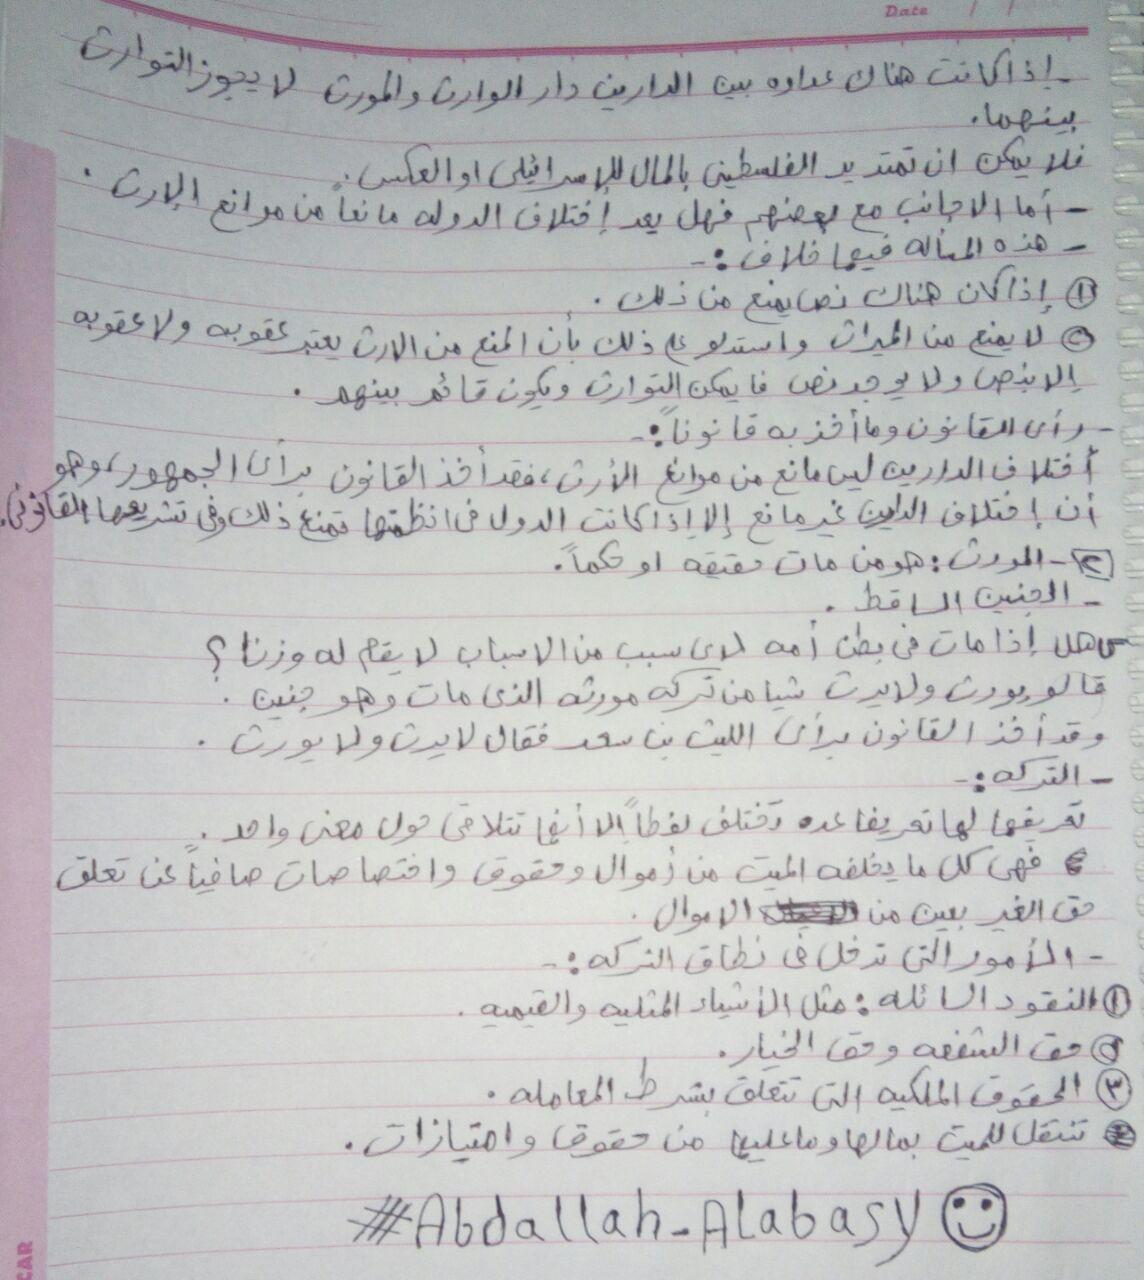 Date / /
- إذا كانت هناك عداوه بين الدارين دار الوارث والمورث لا يجوز التوارث
بينهما.
فلا يمكن ان تمتد يد الفلسطينى بالمال للإسرائيلى او العكس.
- أما الاجانب مع بعضهم فهل يعد إختلاف الدوله مانعاً من موانع الإرث.
- هذه المسأله فيها خلاف :-
① إذا كان هناك نص يمنع من ذلك.
② لا يمنع من الميراث واستدلو على ذلك بأن المنع من الارث يعتبر عقوبه ولا عقوبه
إلا بنص ولا يوجد نص فا يمكن التوارث ويكون قائم بينهم.
- رأى القانون وما أخذ به قانوناً :-
أختلاف الدارين ليس مانع من موانع الأرث، فقد أخذ القانون برأى الجمهور، وهو
أن إختلاف الدارين غير مانع إلا إذا كانت الدول فى انظمتها تمنع ذلك وفى تشريعها القانونى.
- المورث : هو من مات حقيقه او حكماً.
- الجنين الساقط.
س هل إذا مات فى بطن أمه لاى سبب من الاسباب لا يقام له وزنا ؟
قالو يورث ولا يرث شيا من تركه مورثه الذى مات وهو جنين.
وقد أخذ القانون برأى الليث بن سعد فقال لا يرث ولا يورث.
- التركه :-
تعريفها لها تعريفا عده تختلف لفظاً إلا أنها تتلاقى حول معنى واحد.
فهى كل ما يخلفه الميت من أموال وحقوق واختصاصات صافياً عن تعلق
حق الغير بعين من الاموال.
- الأمور التى تدخل فى نطاق التركه :-
① النقود السائله : مثل الأشياء المثليه والقيميه.
② حق الشفعه وحق الخيار.
③ الحقوق الملكيه التى تتعلق بشرط المعامله.
تنتقل للميت بمالها وما عليها من حقوق وامتيازات.
#Abdallah_Alabasy
CAR